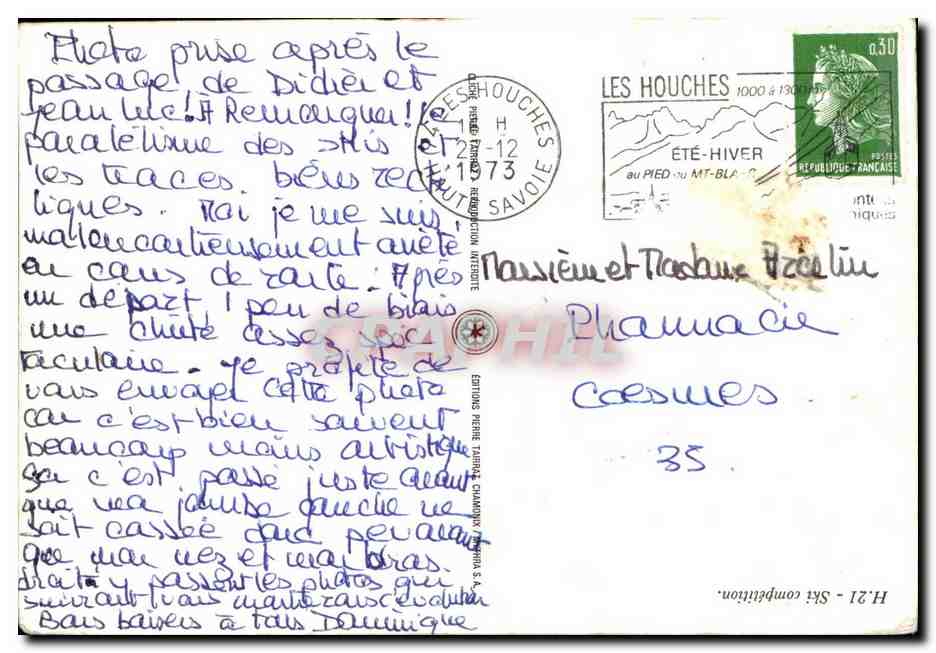 Photo prise après le
passage de Didier et
Jean Luc! A Remarquer! le
parallélisme des skis et
les traces. biens rect
tiques. Moi je me suis
malencontieusement arrêté
en cours de route. Après
un départ 1 peu de biais
une chûte assez spec
taculaire. Je profite de
vous envoyer cette photo
car c'est bien souvent
beaucoup moins artistique
ça c'est passé juste avant
que ma jambe gauche ne
soit cassée donc peu avant
que mon nez et mon bras.
droits y passent les photos qui
suivront vous montrerons l'evolution
Bons baisers à tous Dominique
LES HOUCHES
12
1973
HAUTE SAVOIE
LES HOUCHES 1000 à 1300
ÉTÉ-HIVER
au PIED du MT-BLANC
0,30
POSTES
RÉPUBLIQUE FRANÇAISE
CLICHÉ PIERRE TAIRRAZ REPRODUCTION INTERDITE
ÉDITIONS PIERRE TAIRRAZ CHAMONIX
S.A.
Monsieur et Madame
Pharmacie
Coësmes.
35.
H.21 - Ski compétition.
CPAPHIL